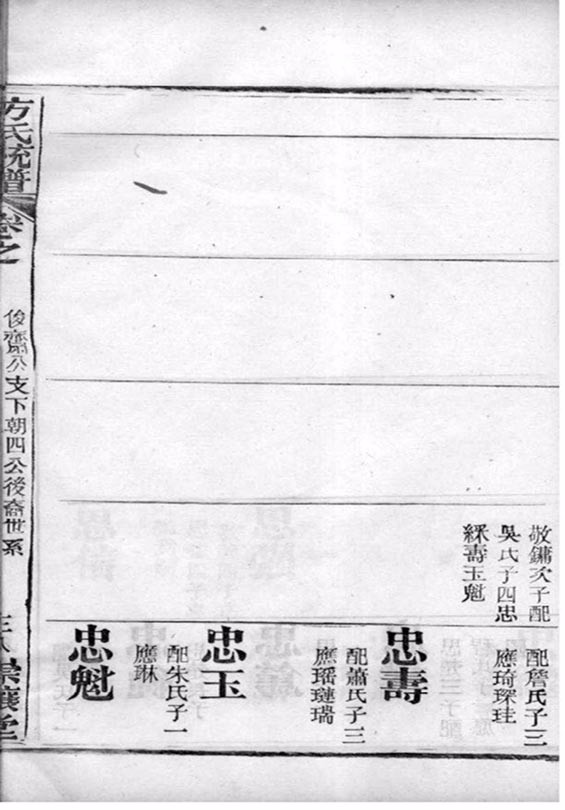 敬鏞次子配
吳氏子四忠
綵壽玉魁
配詹氏子三
應琦琛珪
忠壽
配蕭氏子三
應瑤璉瑞
忠玉
配朱氏子一
應琳
忠魁
方氏統譜
卷之
俊齋公支下朝四公後裔世系